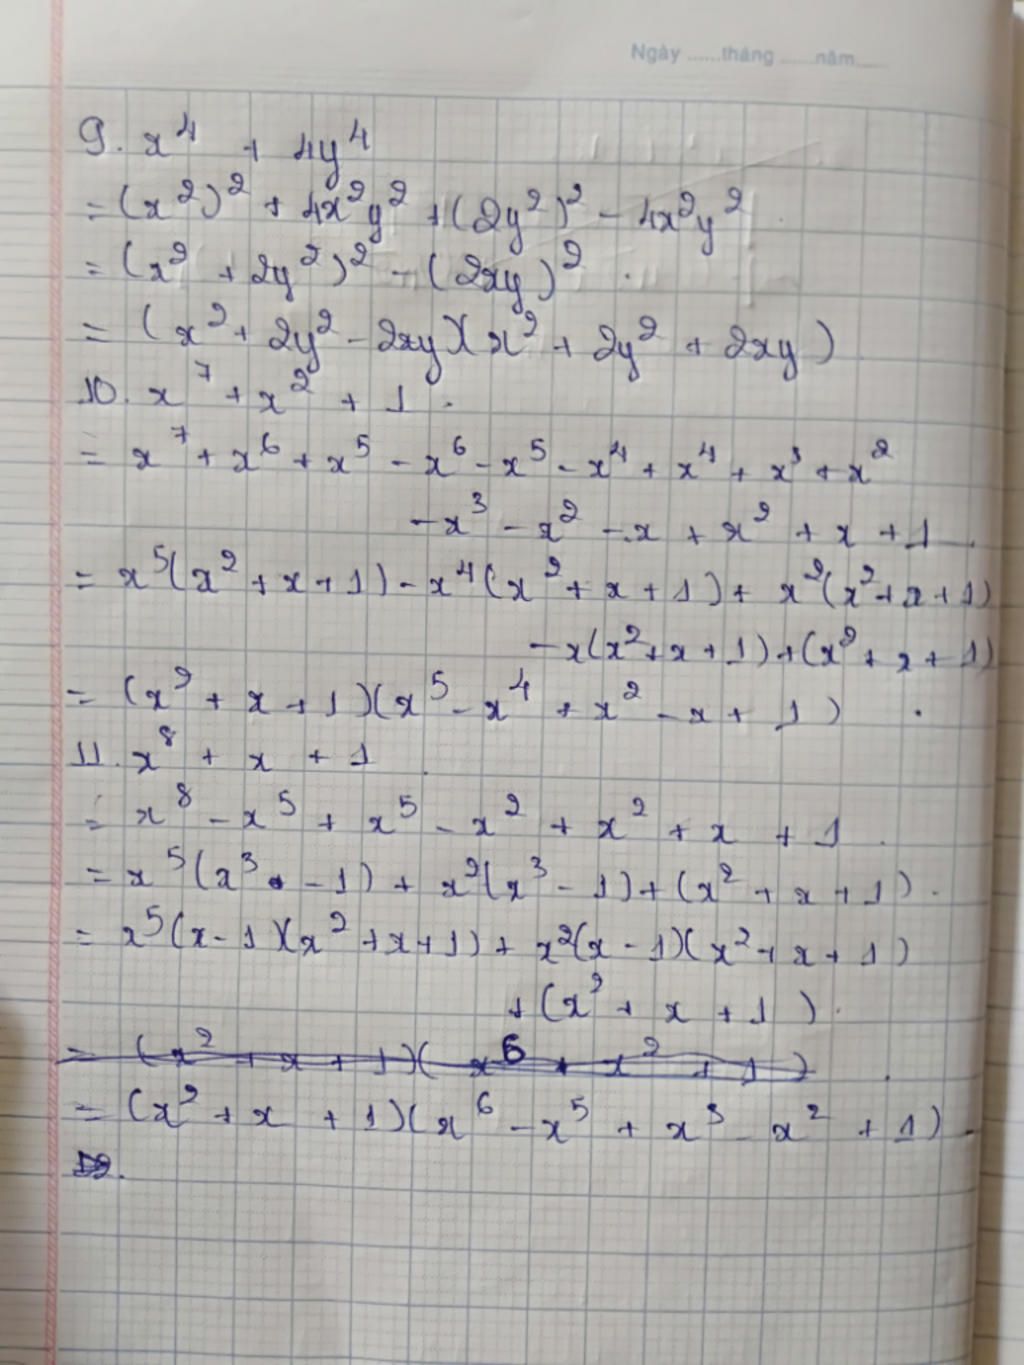 Ngày ......tháng ......năm......
9. x⁴ + 4y⁴
= (x²)² + 4x²y² + (2y²)² - 4x²y²
= (x² + 2y²)² - (2xy)².
= (x² + 2y² - 2xy)(x² + 2y² + 2xy)
10. x⁷ + x² + 1.
= x⁷ + x⁶ + x⁵ - x⁶ - x⁵ - x⁴ + x⁴ + x³ + x²
- x³ - x² - x + x² + x + 1.
= x⁵(x² + x + 1) - x⁴(x² + x + 1) + x²(x² + x + 1)
- x(x² + x + 1) + (x² + x + 1)
= (x² + x + 1)(x⁵ - x⁴ + x² - x + 1).
11. x⁸ + x + 1.
= x⁸ - x⁵ + x⁵ - x² + x² + x + 1.
= x⁵(x³ - 1) + x²(x³ - 1) + (x² + x + 1).
= x⁵(x - 1)(x² + x + 1) + x²(x - 1)(x² + x + 1)
+ (x² + x + 1).
= (x² + x + 1)(x⁶ + x² + 1).
= (x² + x + 1)(x⁶ - x⁵ + x³ - x² + 1).